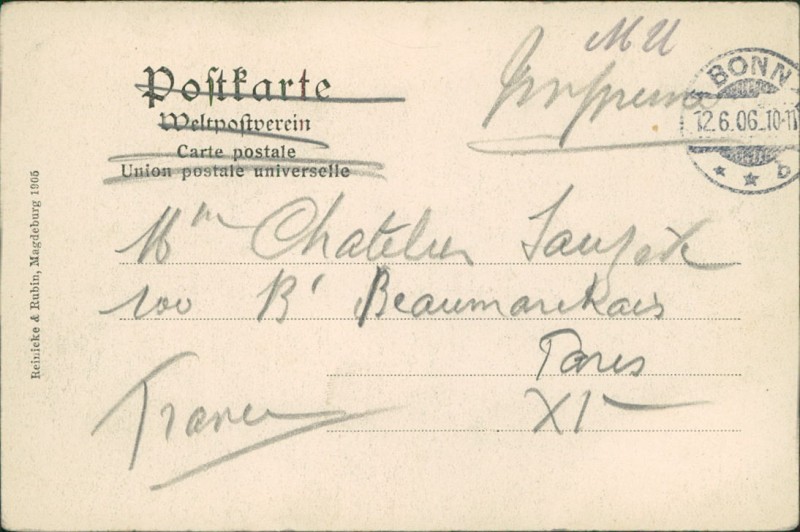 M U
Postkarte
Weltpostverein
Carte postale
Union postale universelle
BONN
12.6.06.10-11
* * b
Reinicke & Rubin, Magdeburg 1905
Mme Chatelier
100 Bd Beaumarchais
Paris
XIe
France